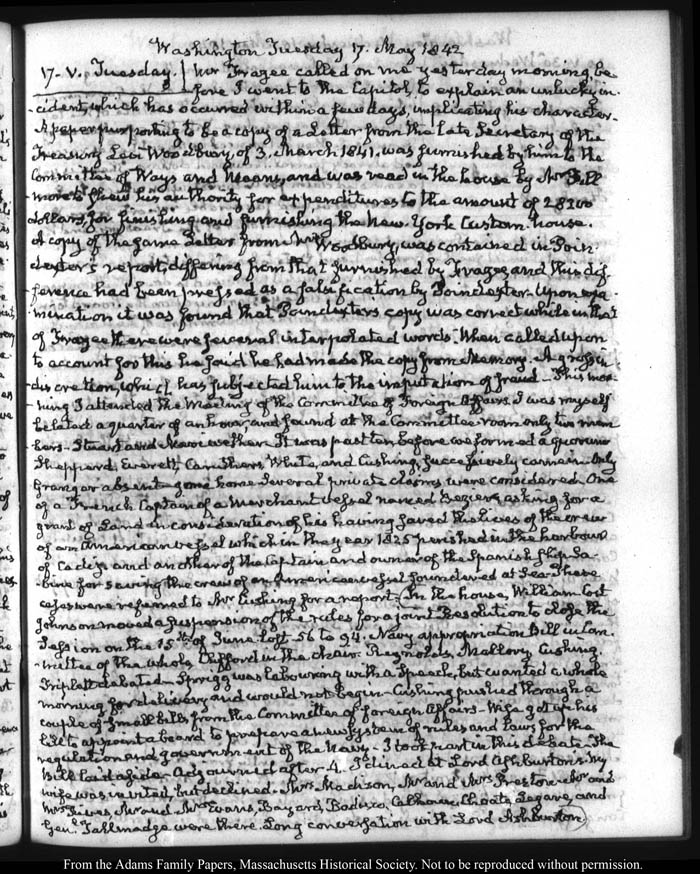 Washington Tuesday 17. May 1842
17. V. Tuesday. Mr Frazee called on me yesterday morning, be-
fore I went to the Capitol, to explain an unlucky in-
-cident, which has occurred within a few days, implicating his character.
A paper purporting to be a copy of a Letter from the late Secretary of the
Treasury Levi Woodbury, of 3. March 1841. was furnished by him to the
Committee of Ways and Means, and was read in the house by Mr Fill-
more to shew his authority for expenditures to the amount of
dollars, for finishing and furnishing the New-York Custom-house.
A copy of the same Letter from Mr Woodbury, was contained in Poin-
dexter's report, differing from that furnished by Frazee, and this dif-
-ference had been pressed as a falsification by Poindexter. Upon exa-
-mination it was found that Poindexter's copy was correct while in that
of Frazee there were several interpolated words. When called upon
to account for this he said he had made the copy from Memory. A gross in-
-discretion, which has subjected him to the imputation of fraud— This mor-
-ning I attended the Meeting of the Committee of Foreign Affairs. I was myself
belated a quarter of an hour, and found at the Committee room only two mem-
bers— Stuart and Meriwether. It was past ten before we formed a quorum
Shepperd, Everett, Caruthers, White, and Cushing, successively came in. Only
Granger absent gone home. Several private claims were considered. One
of a French Captain of a Merchant vessel named Beziers, asking for a
grant of Land in consideration of his having saved the lives of the crew
of an American vessel which in the year 1825 perished in the harbour
of Cadiz and another of the Captain and owner of the Spanish Ship Sa-
-bina for saving the crew of an American vessel foundered at Sea. These
cases were referred to Mr Cushing for a report. In the house, William Cost
Johnson moved a suspension of the rules for a joint Resolution to close the
Session on the 15th of June. lost. 56 to 94. Navy appropriation Bill in Com-
-mittee of the whole Clifford in the chair. Reynolds, Mallory, Cushing,
Triplett debated— Sprigg was labouring with a Speech, but wanted a whole
morning for delivery and would not begin— Cushing pushed through a
couple of small bills from the Committee of foreign Affairs— Wise got up his
bill to appoint a board to prepare a new System of rules and laws for the
regulation and government of the Navy— I took part in this debate. The
Bill laid aside. Adjourned after 4. I dined at Lord Ashburton's. My
wife was invited, but declined. Mrs Madison, Mr and Mrs Preston, Mr and
Mrs Rives, Mr and Mrs Evans, Bayard, Bodisco, Calhoun, Choate, Legare, and
Genl Tallmadge were there. Long conversation with Lord Ashburton.
From the Adams Family Papers, Massachusetts Historical Society. Not to be reproduced without permission.